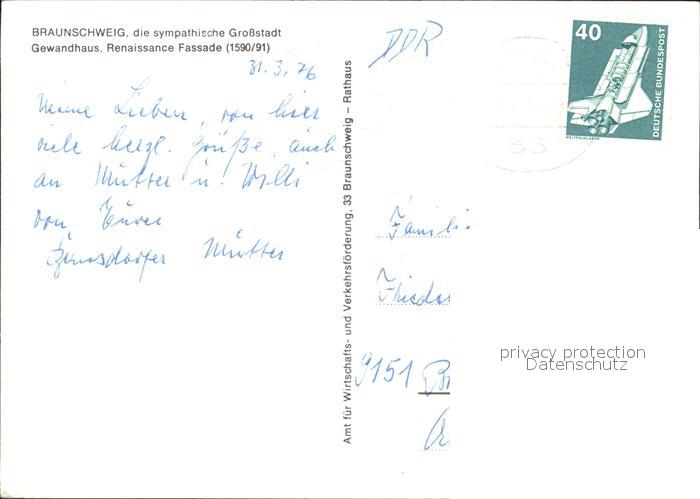 BRAUNSCHWEIG, die sympathische Großstadt
Gewandhaus, Renaissance Fassade (1590/91)
31.3.76
Meine Lieben, von hier
viele herzl. Grüße, auch
an Mutter u. Willi
von Eurer
Mutter
Amt für Wirtschafts- und Verkehrsförderung, 33 Braunschweig – Rathaus
DDR
40
DEUTSCHE BUNDESPOST
WELTRAUMLABOR
33
Famili
9151
privacy protection
Datenschutz